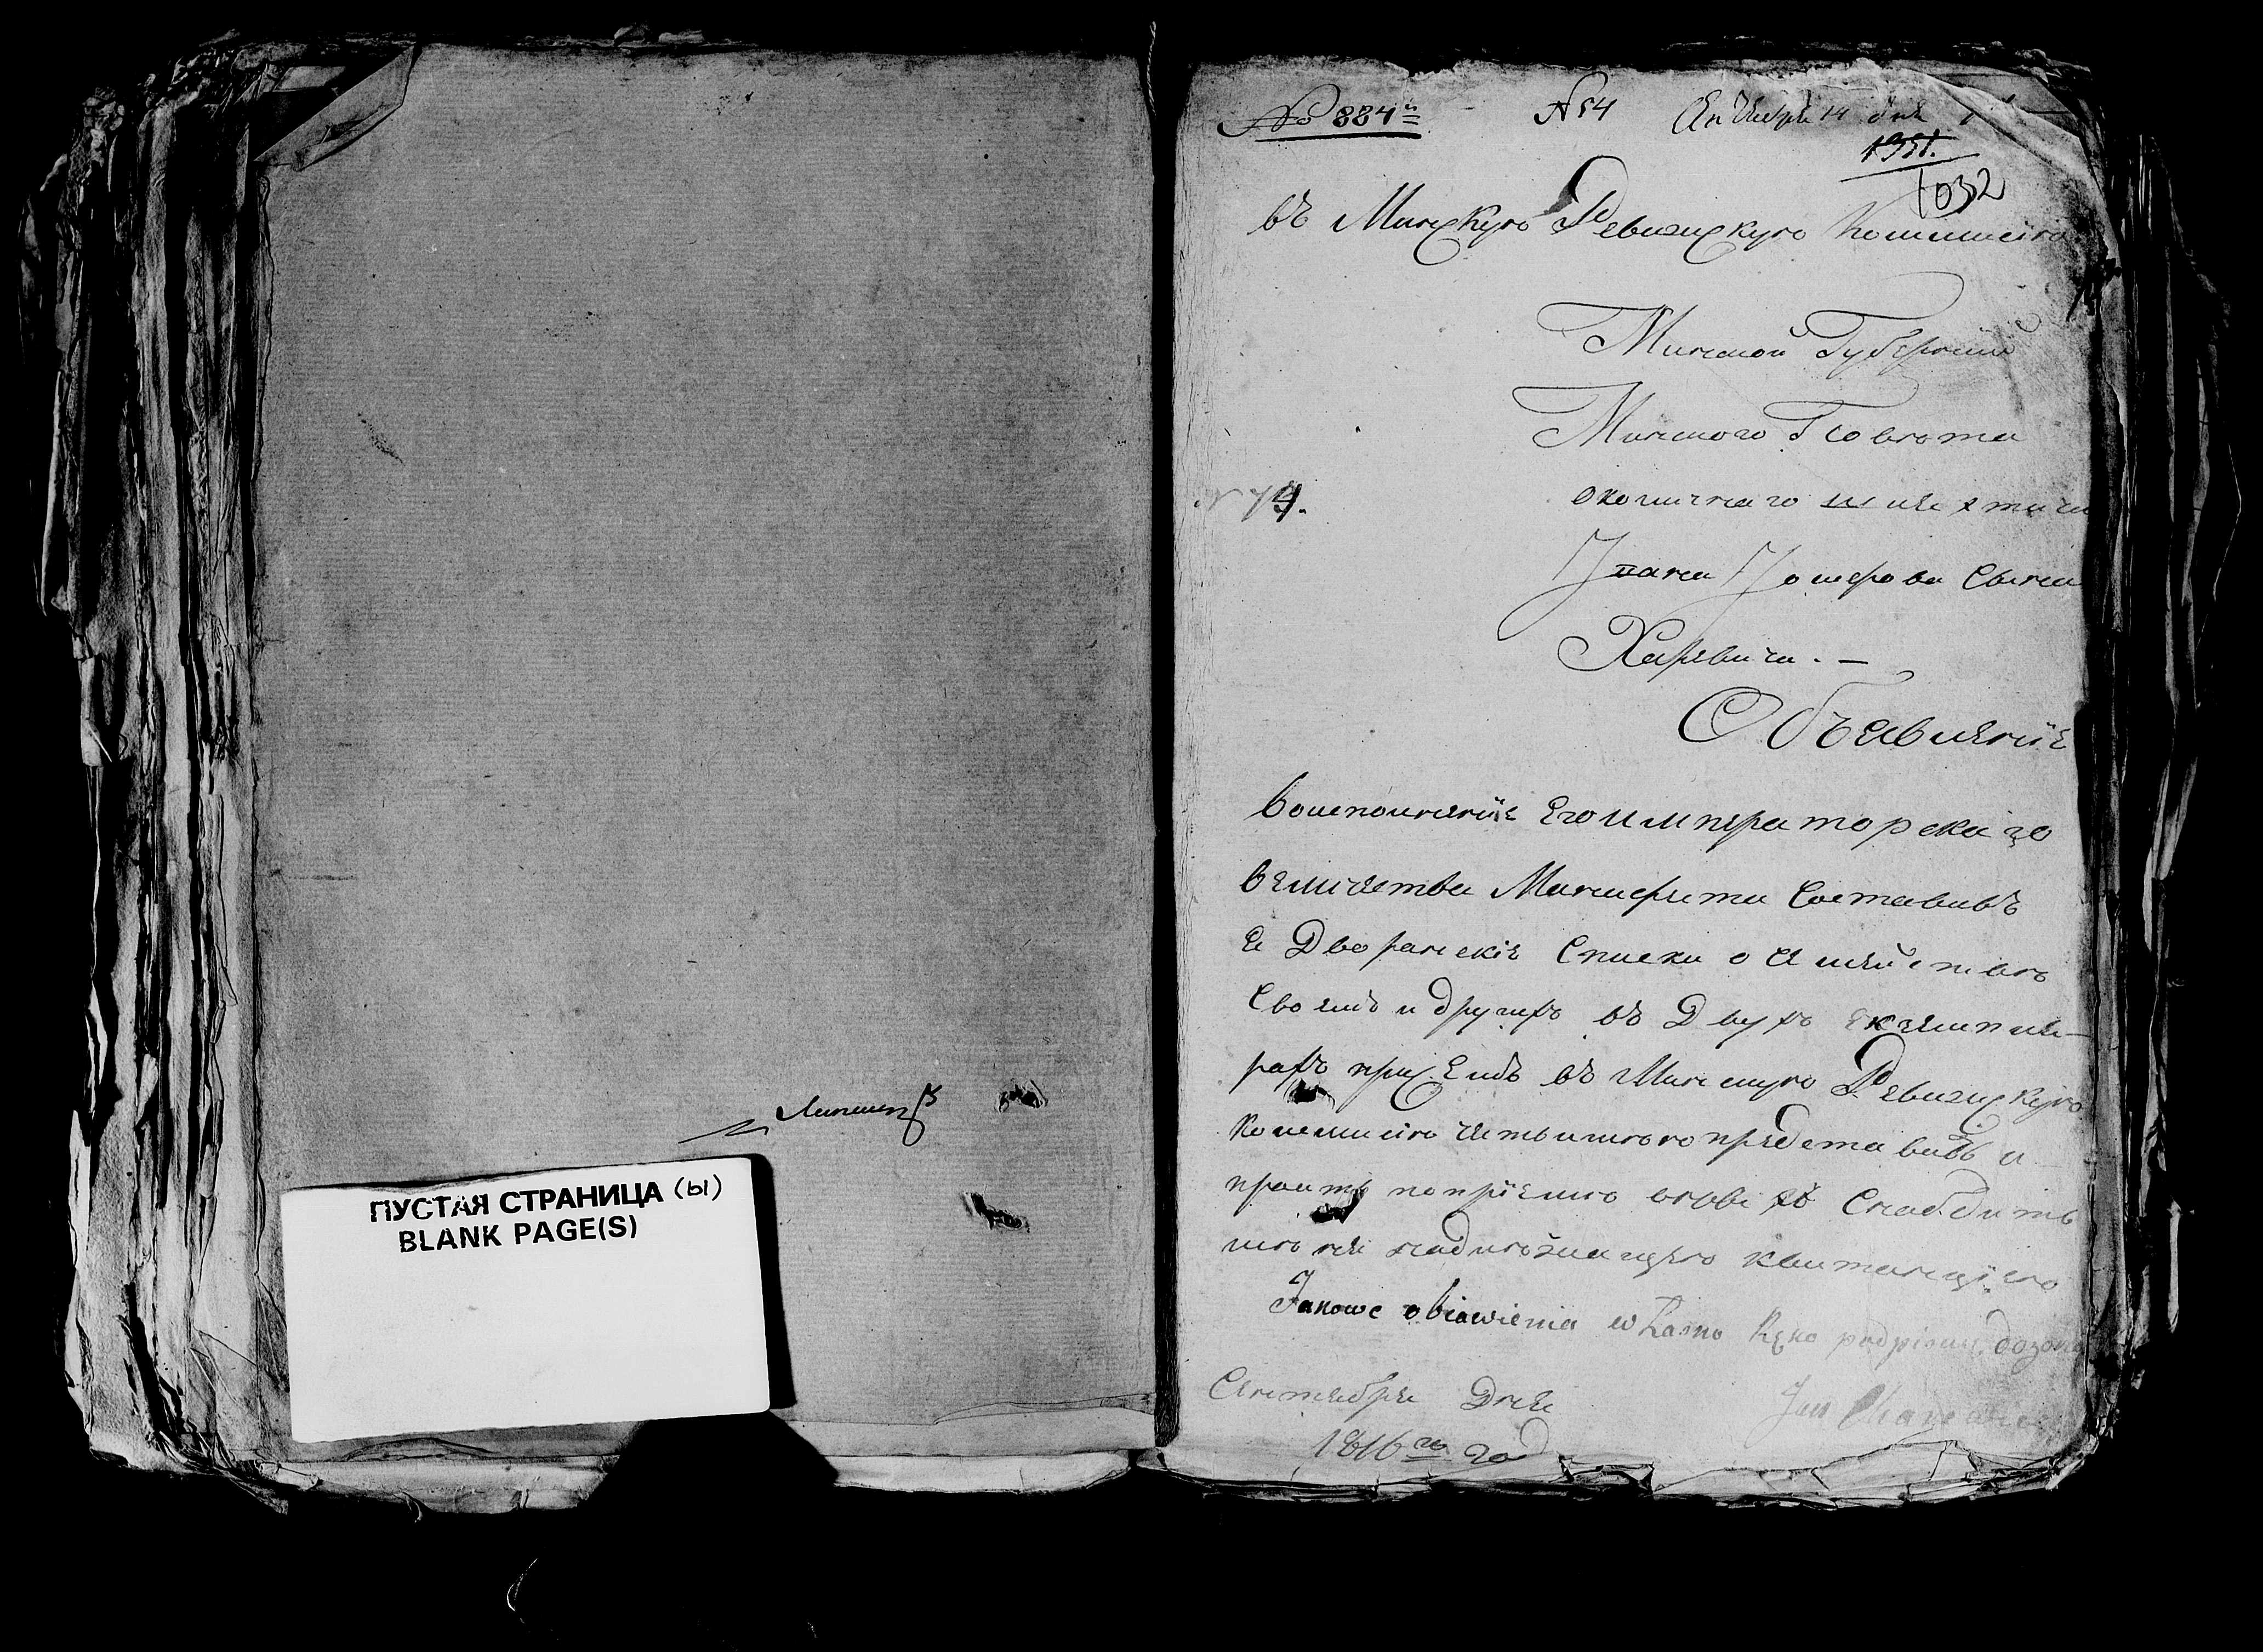 ПУСТАЯ СТРАНИЦА (ы)
BLANK PAGE(S)
№ 884й
№ 54 Сентября 14 дня
1951.
1032
въ Минскую Ревизскую Коммисію
Минской Губерніи
Минского Повѣта
околичнаго шляхтича
№ 74.
Ивана Іозефова Сына
Харевича. —
Объявленіе
Воисполненіе Его Императорскаго
Величества Манифеста Составивъ
я Дворянскіе Списки о Семействѣ
Своемъ и другихъ въ Двухъ екземпля-
рахъ при семъ въ Минскую Ревизскую
Коммисію представивъ и
проситъ попріемѣ оныхъ Снабдить
мѣня надлѣжащею квитанціею
Jakowe obiawienia własno Ręko podpisuię
Сентября Дня
1816го год
Jan